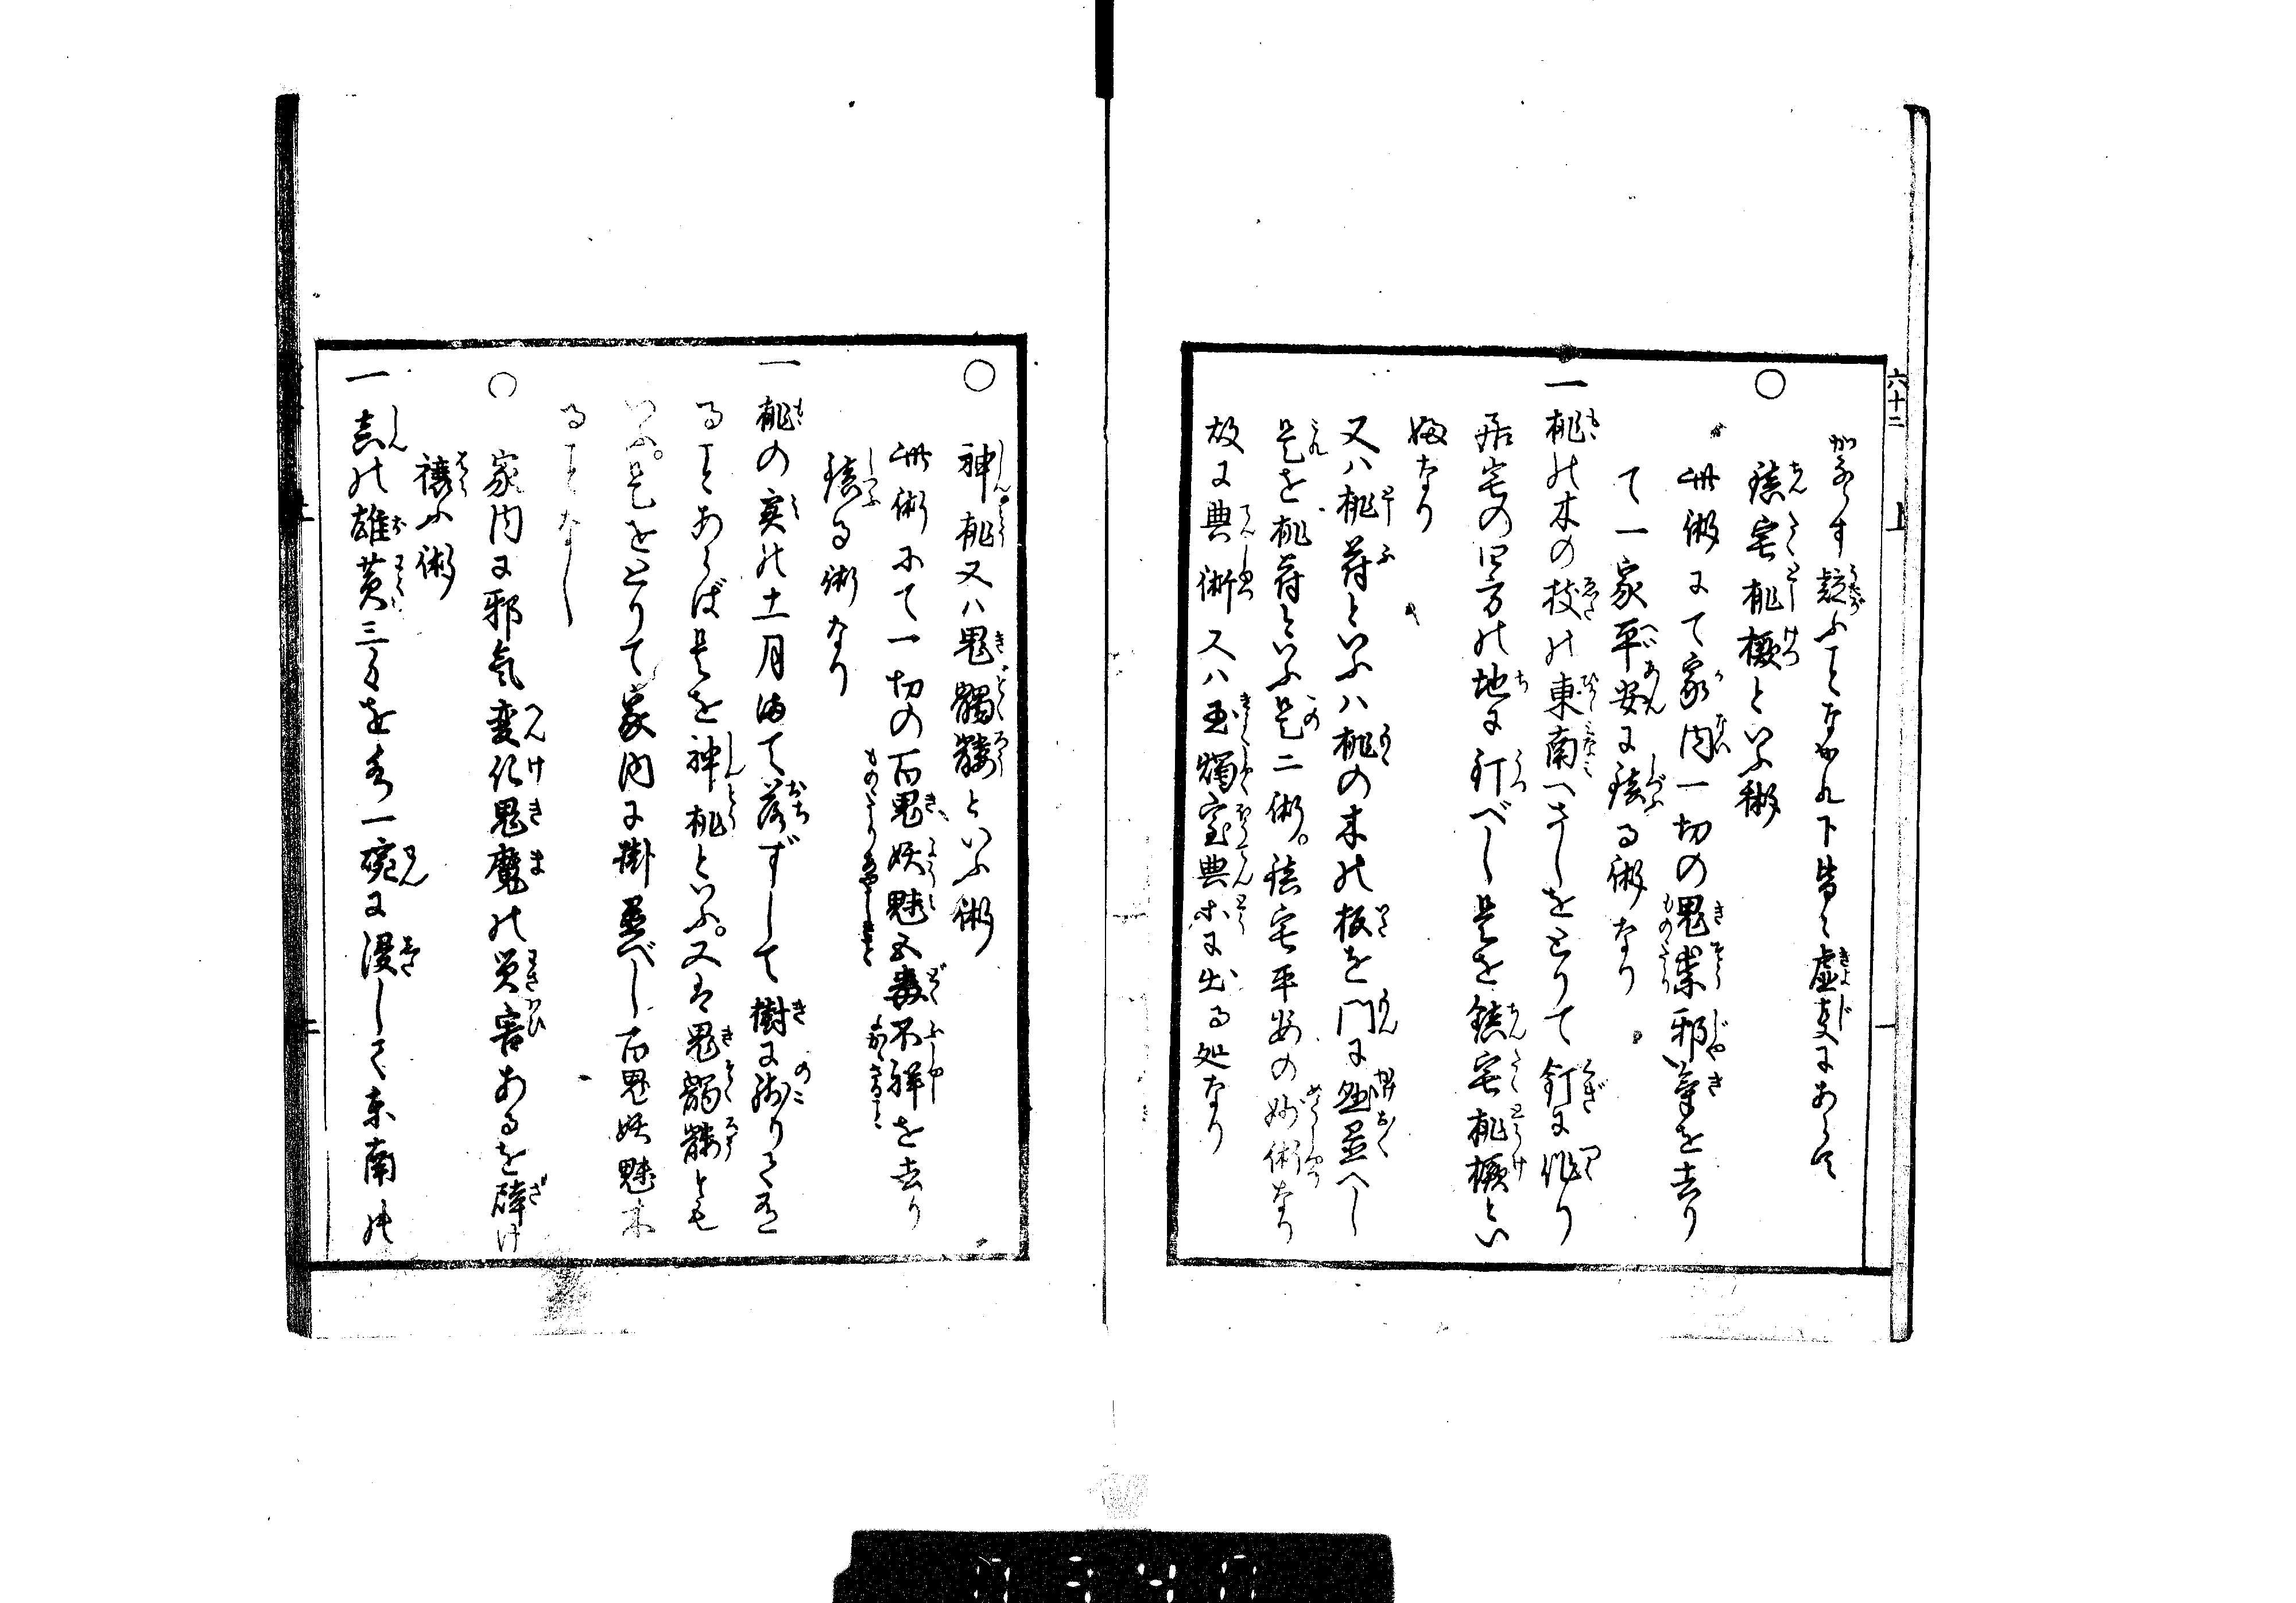 六十二 上
かならす疑ふことなかれ下皆々虚事にあらす
○ 鎮宅桃橛といふ術
此術にて家内一切の鬼祟邪気等を去り
て一家平安に鎮る術なり
一 桃の木の枝の東南へさしをとりて釘に作り
居宅の四方の地に釘べし是を鎮宅桃橛とい
ふなり
又ハ桃符といふハ桃の木の板を門に掛置へし
是を桃符といふ是二術。鎮宅平安の妙術なり
故に典術又ハ玉燭宝典等に出る処なり
○ 神桃又ハ鬼髑髏といふ術
此術にて一切の百鬼妖魅五毒不祥を去り
鎮る術なり
一 桃の実の十二月まて落ずして樹に残りて有
ることあらば是を神桃といふ。又は鬼髑髏とも
いふ。是をとりて家内に掛置べし百鬼妖魅来
ることなし
○ 家内に邪気変化鬼魔の災害あるを辟け
禳ふ術
一 真の雄黄三匁を水一碗に浸して東南の